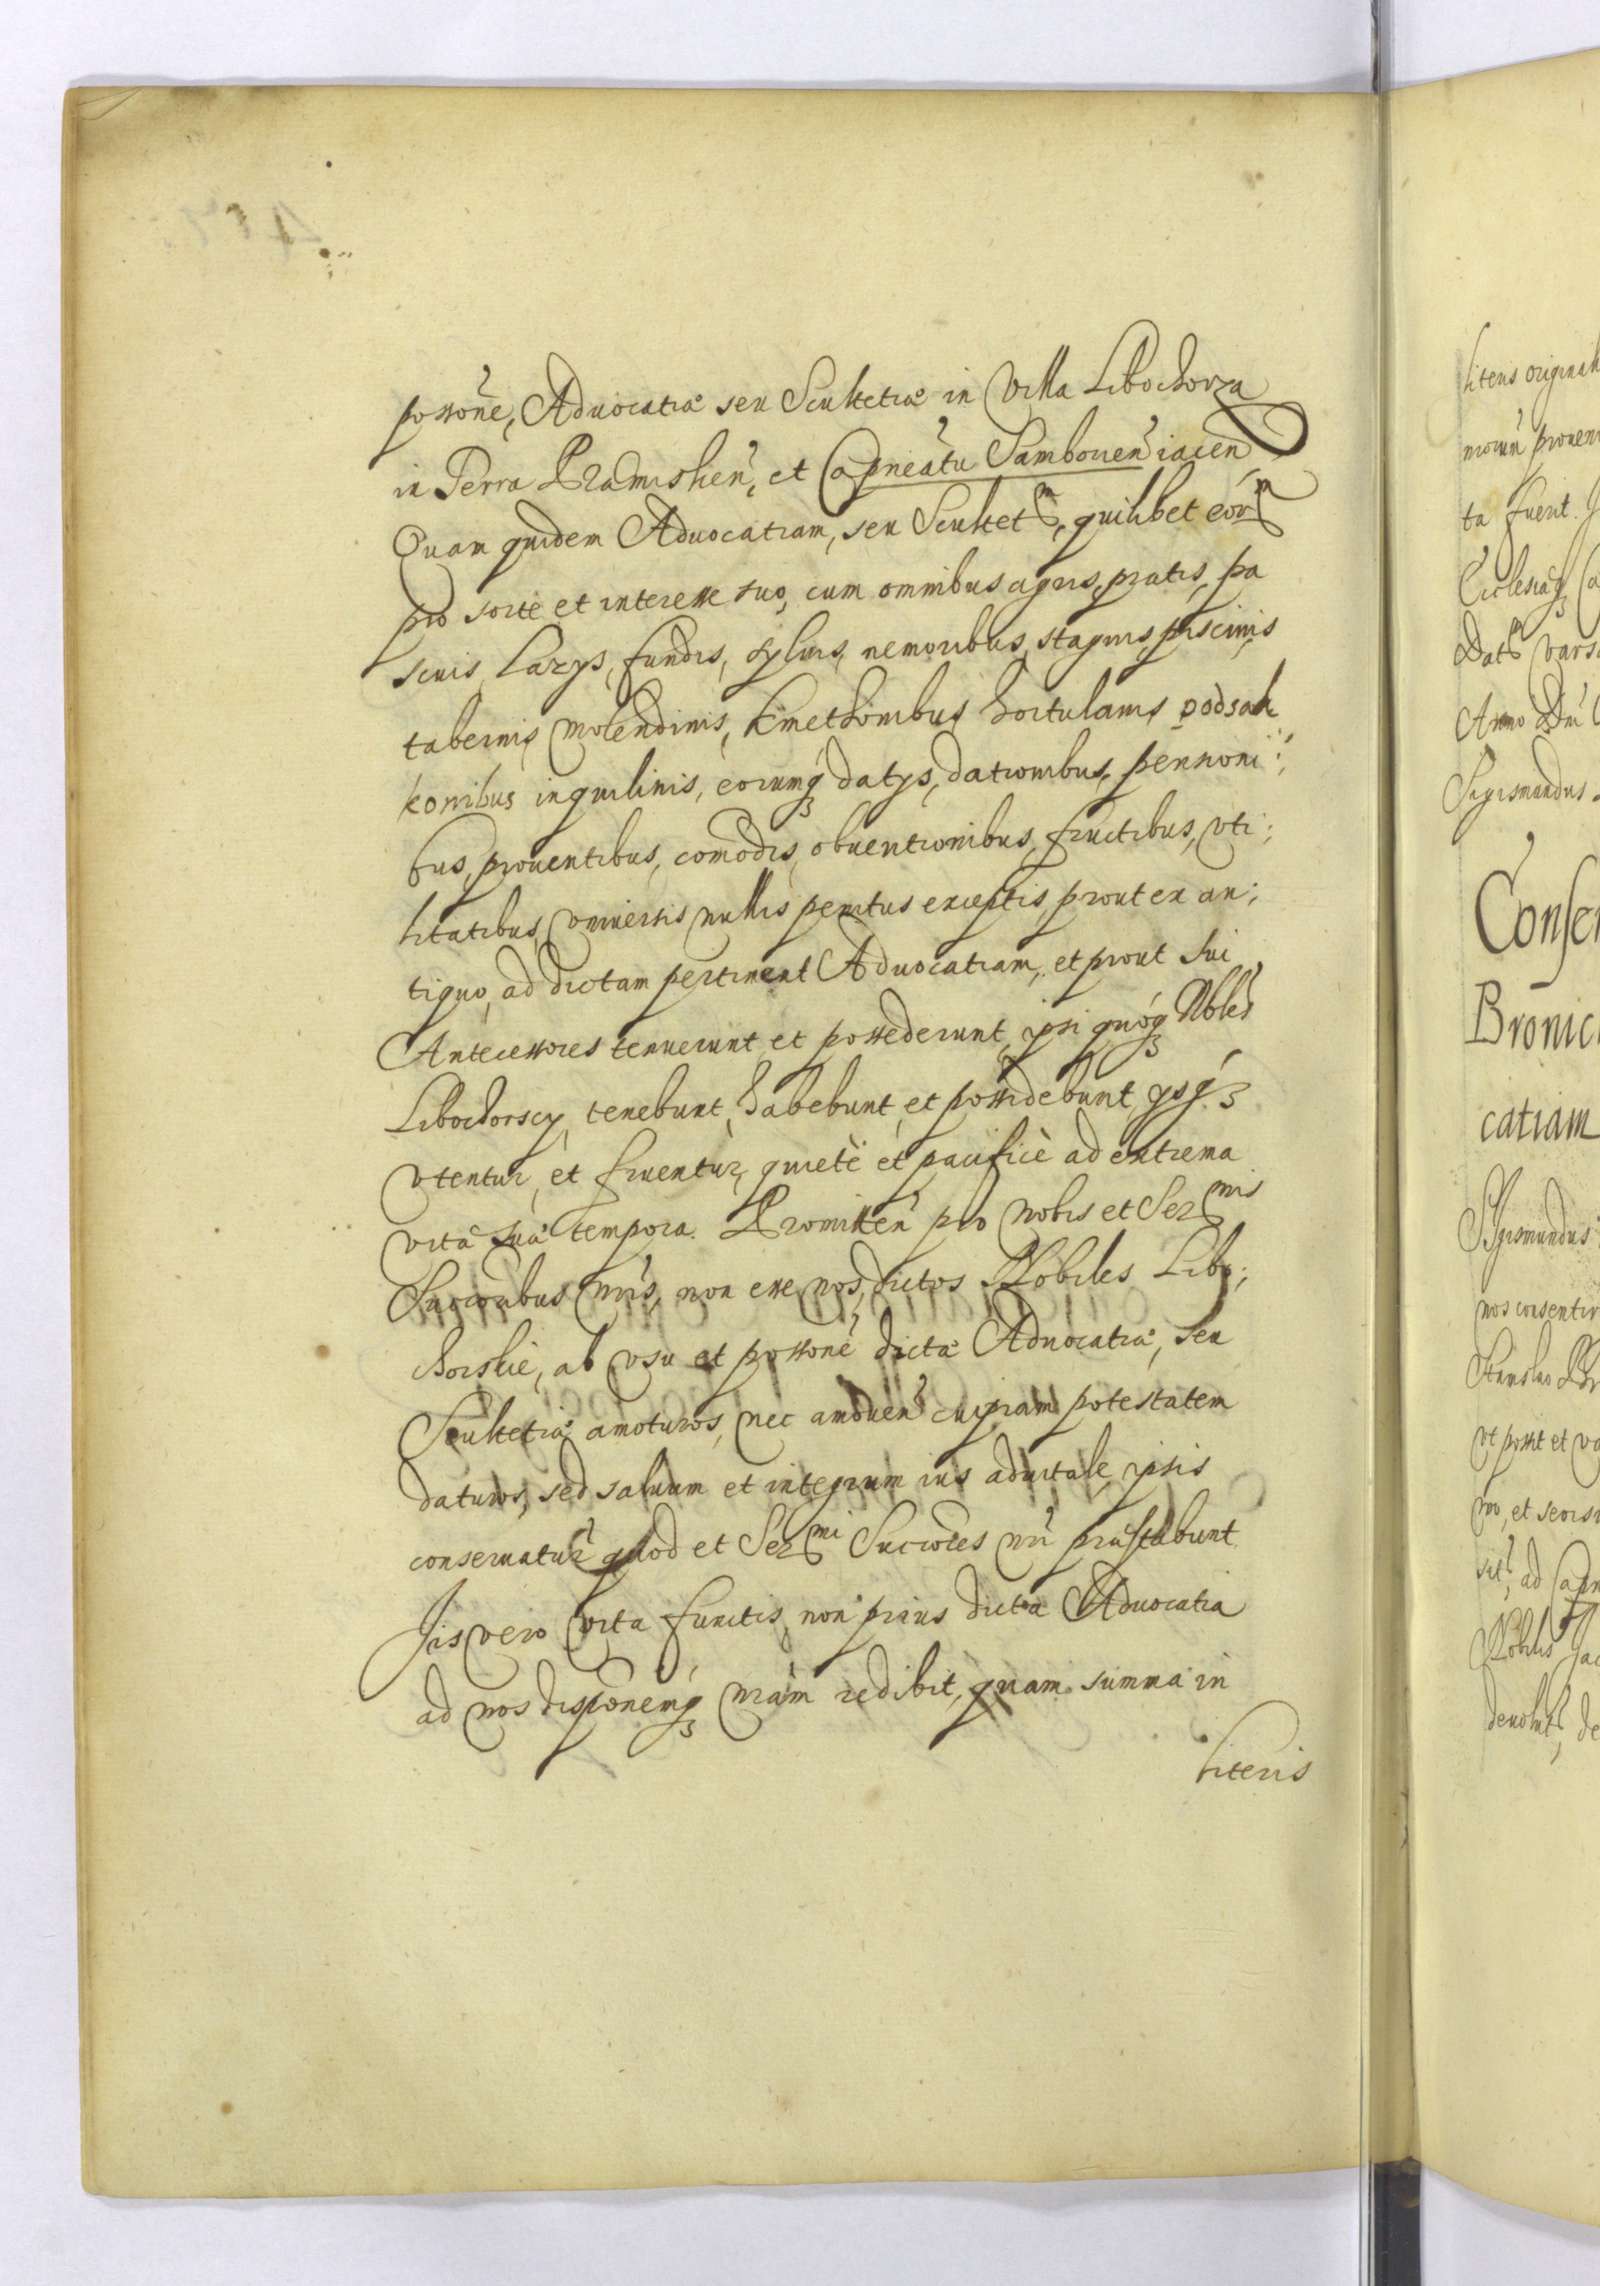 possone, Aduocatiæ seu Scultetiæ in Villa Libochorza
in Terra Præmislien, et Capneatu Samborien iacen
Quam quidem Aduocatiam, seu Scultet<sup>m</sup>, quilibet eor<sup>m</sup>
pro sorte et interesse suo, cum omnibus agris, pratis, pa
scuis, Lazys, fundis, syluis, nemoribus, stagnis, piscinis
tabernis, molendinis, Kmethonibus, hortulanis podsad
konibus inquilinis, eorumq datys, dationibus, pensioni:
bus, prouentibus, comodis, obuentionibus, fructibus, vti:
litatibus, vniuersis nullis penitus exceptis, prout ex an:
tiquo, ad dictam pertinent Aduocatiam, et prout sui
Antecessores tenuerunt et possederunt, ipsi quóq Nbles
Libochorscy, tenebunt, habebunt, et possidebunt, ysq
vtentur, et fruentur, quietè et pacificè ad extrema
vitæ suæ tempora. Promitten pro nobis et Ser<sup>mis</sup>
Succoribus nris, non esse nos, dictos Nobiles Libo:
chorskie, ab vsu et possone dictæ Aduocatiæ, seu
Scultetiæ amoturos, nec amouen cuipiam potestatem
daturos, sed saluum et integrum ius aduitale, ipsis
conseruatur quod et Ser<sup>mi</sup> Succores nri præstabunt.
Jis vero vita functis, non prius dicta Aduocatia
ad nos disponemq nram redibit, quam summa in
literis
literis original
morum prouen
ta fuert. J
Ecclesiaq Ca
Dat Varsa
Anno Dni
Sigismundus
Consen
Bronic
catiam
Sigismundus
nos consentir
Stanislao
vt possit et va
et seors
ad Capn
Nobilis Jac
deuolut, de